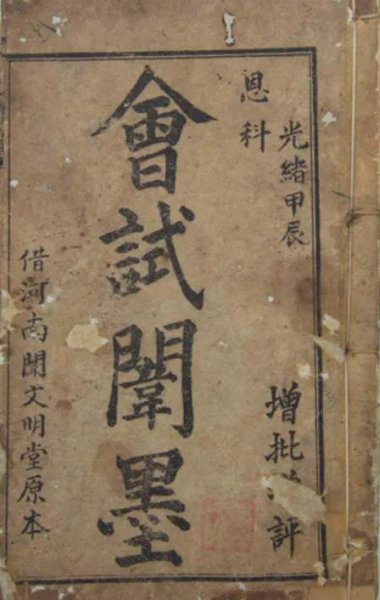 光緒甲辰
恩科
增批評
會試闈墨
借河南闈文明堂原本